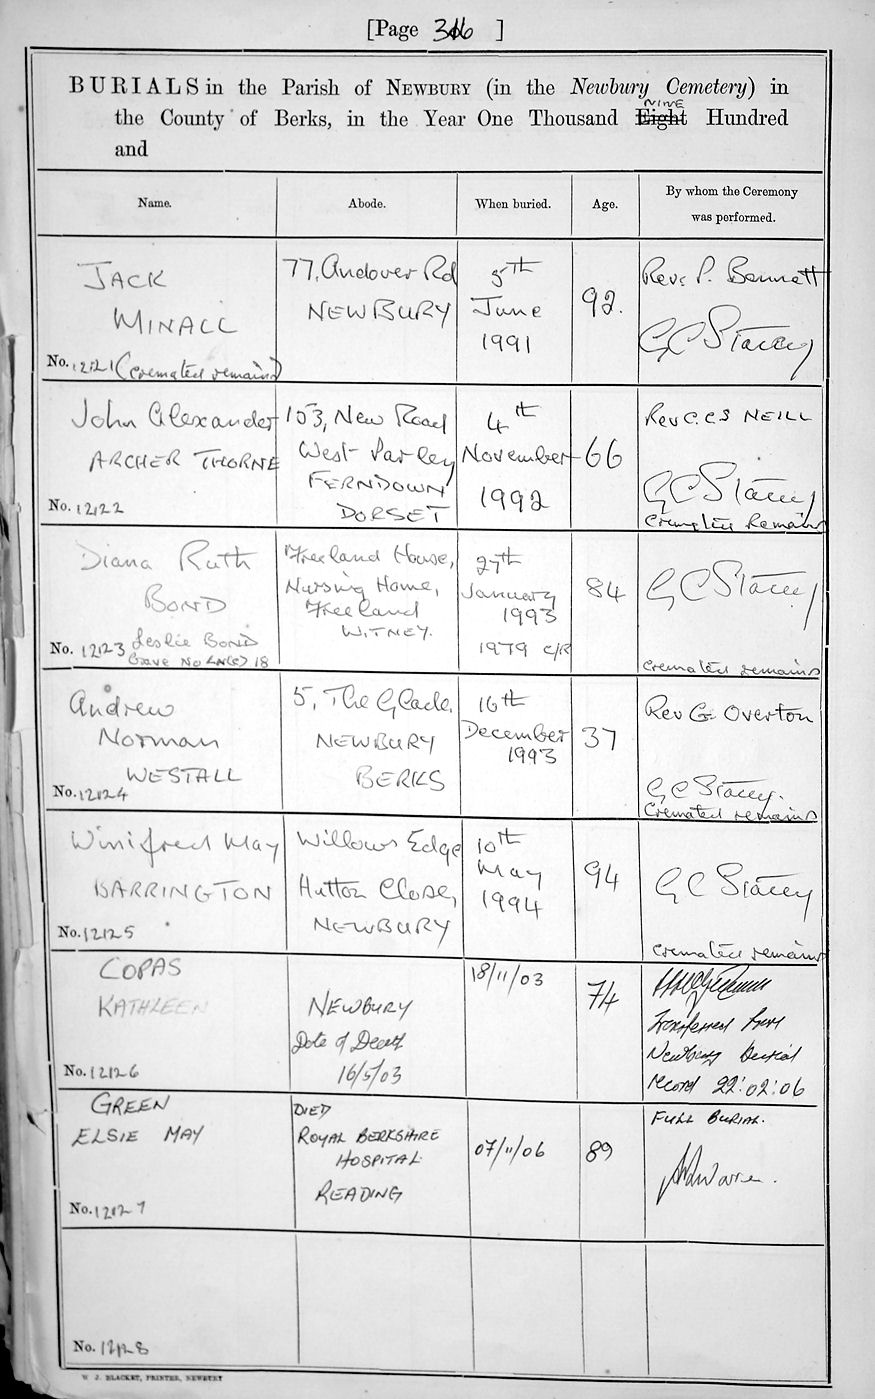 [Page 316 ]
BURIALS in the Parish of NEWBURY (in the Newbury Cemetery) in
NINE
the County of Berks, in the Year One Thousand Eight Hundred
and
Name. Abode. When buried. Age. By whom the Ceremony
was performed.
JACK
MINALL
No. 12121 (cremated remains)
77, Andover Rd
NEWBURY
5th
June
1991
92.
Rev. P. Bennett
G C Stacey
John Alexander
ARCHER THORNE
No. 12122
103, New Road
West Parley
FERNDOWN
DORSET
4th
November
1992
66
Rev C. CS NEILL
G C Stacey
Cremated Remains
Diana Ruth
BOND
No. 12123 Leslie BOND
Grave No LN(C) 18
Freeland House,
Nursing Home,
Freeland
WITNEY.
27th
January
1993
1979 C/R
84
G C Stacey
cremated remains
Andrew
Norman
WESTALL
No. 12124
5, The Glade,
NEWBURY
BERKS
16th
December
1993
37
Rev G. Overton
G C Stacey.
Cremated remains
Winifred May
BARRINGTON
No. 12125
Willows Edge
Hutton Close,
NEWBURY
10th
May
1994
94
G C Stacey
cremated remains
COPAS
KATHLEEN
No. 12126
NEWBURY
Date of Death
16/5/03
18/11/03
74
Transferred from
Newbury Burial
record 22:02:06
GREEN
ELSIE MAY
No. 12127
DIED
ROYAL BERKSHIRE
HOSPITAL
READING
07/11/06
89
FULL BURIAL.
No. 12128
W. J. BLACKET, PRINTER, NEWBURY